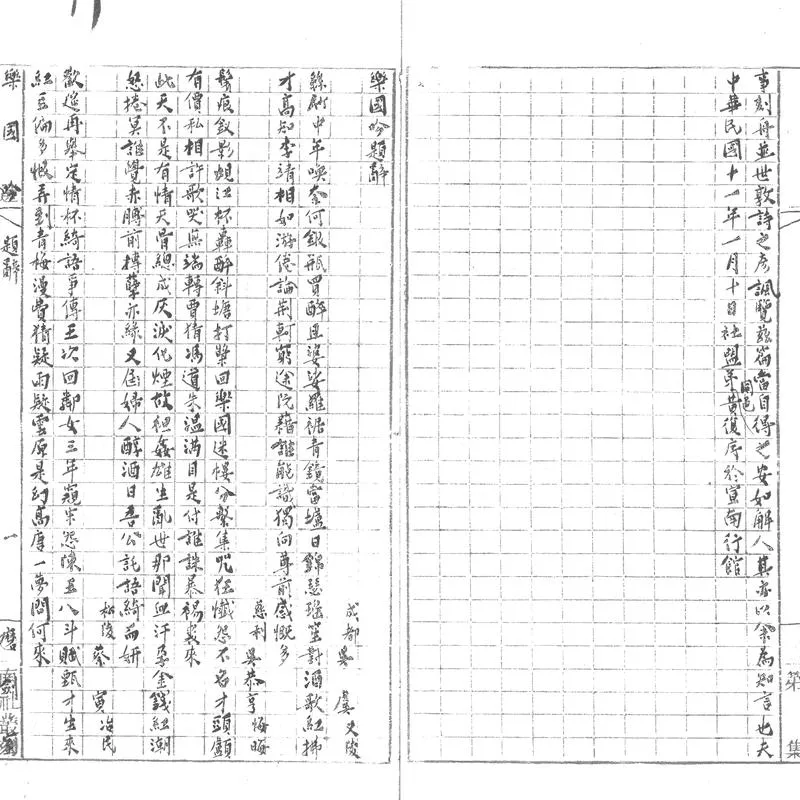 事刻舟並世敦詩之彥諷覽茲篇當自得之安如解人其亦以余為知言也夫
中華民國十一年一月十日社盟弟同邑黃復序於宣南行館
第 集
樂國吟題辭
成都吳 虞又陵
絲竹中年喚奈何銀瓶買醉且婆娑羅裙青鏡當壚日錦瑟瑤笙對酒歌紅拂
才高知李靖相如游倦論荊軻窮途阮籍誰能識獨向尊前感慨多
慈利吳恭亨悔晦
鬢痕釵影靚江杯轟醉斜塘打槳回樂國迷樓分繫集咒狂懺怨不名才頭顱
有價私相許歌哭無端轉費猜馮道朱溫滿目是付誰誅暴裼裘來
此天不是有情天骨總成灰滅化煙故袒姦雄生亂世那聞血汗孕金錢紅潮
怒捲冥誰覺赤前摶孽亦緣又屆婦人醇酒日吾公託語綺而妍
松陵蔡 寅冶民
歡筵再舉定情杯綺語爭傳王次回鄰女三年窺宋怨懷王八斗賦甄才生來
紅豆偏多恨弄到青梅漫費猜疑雨疑雲原是幻高唐一夢問何來
樂國吟 題辭 一
南社叢刻